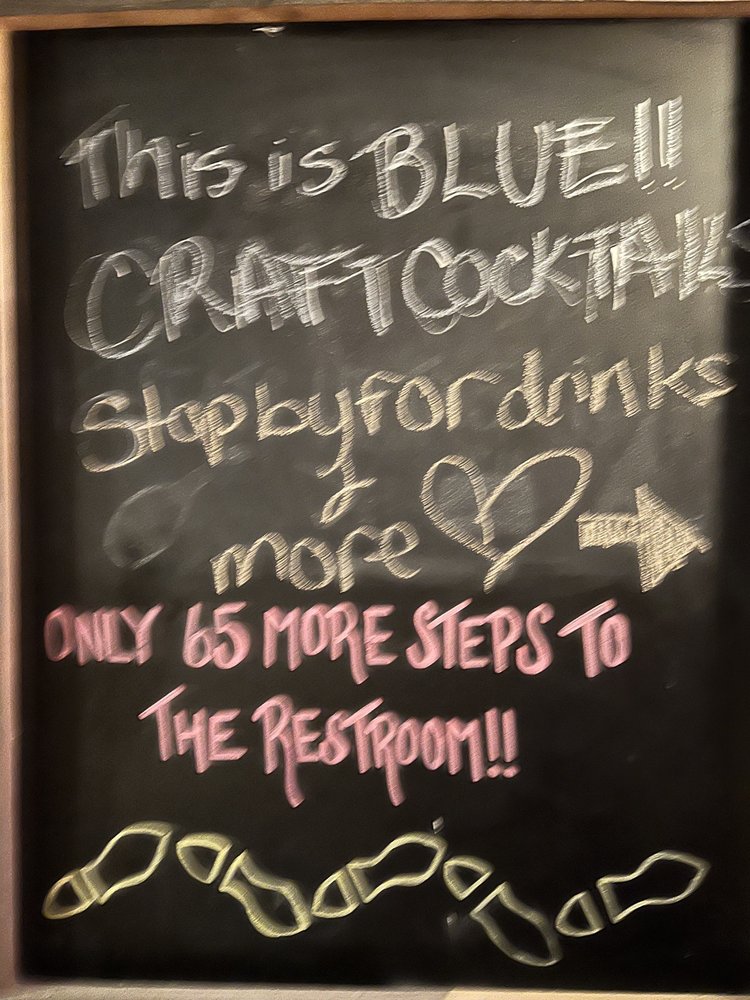 This is BLUE!!
CRAFT COCKTAILS
Stop by for drinks
&
more
ONLY 65 MORE STEPS TO
THE RESTROOM!!